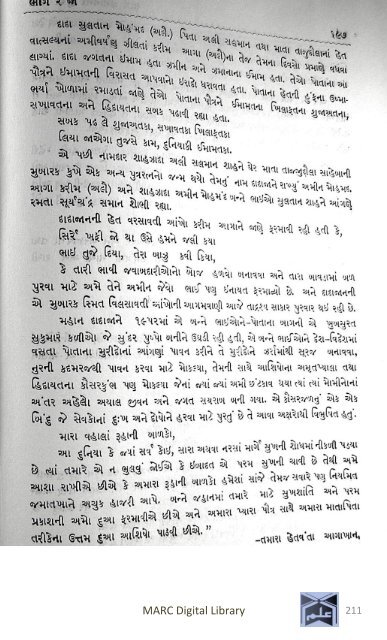 ભાગ ૨ જો
૧૯૭
દાદા સુલતાન મોહંમદ (અતૈ.) પિતા અલી સલમાન તથા માતા તાજુદૌલાનાં હેત
વાત્સલ્યનાં અમીવર્ષણ ઝીલતાં કરીમ આગા (અતૈ)ના તેજ તેમના દિવસો પ્રમાણે વધવા
લાગ્યાં. દાદા જગતના ઇમામ હતા અમીન અને જમાનાના ઇમામ હતા. તેઓ પોતાના આ
પૌત્રને ઇમામતની વિરાસત આપવાનો ઇરાદો ધરાવતા હતા. પોતાના હેતની હુંફના ઉષ્મા
ભર્યા ખોળામાં રમાડતાં જાણે તેઓ પોતાના પૌત્રને ઇમામતના ખિલાફતના શુજાઅતના,
સખાવતના અને હિદાયતના સબક પઢાવી રહ્યા હતા.
સબક પઢ લે શુજાઅતકા, સખાવતકા ખિલાફતકા
લિયા જાયેગા તુજસે કામ, દુનિયાકી ઇમામતકા.
એ પછી નામદાર શાહઝાદા અલી સલમાન શાહને ઘેર માતા તાજુદ્દૌલા સાહેબાની
મુબારક કુખે એક અન્ય પુત્રરત્નનો જન્મ થયો તેમનું નામ દાદાજાને રાખ્યું અમીન મોહંમદ.
આગા કરીમ (અતૈ) અને શાહઝાદા અમીન મોહંમદ બન્ને ભાઈઓ સુલતાન શાહને આંગણે
રમતા સૂર્યચંદ્ર સમાન શોભી રહ્યા.
દાદાજાનની હેત વરસાવતી આંખો કરીમ આગાને જાણે ફરમાવી રહી હતી કે,
સિર્ફ ખફી જો થા ઉસે હમને જલી કયા
ભાઇ તુજે દિયા, તેરા બાઝુ કવી કિયા,
કે તારી ભાવી જવાબદારીઓનો બોજ હળવો બનાવવા અને તારા બાવડામાં બળ
પુરવા માટે અમે તેને અમીન જેવો ભાઇ પણ ઇનાયત ફરમાવ્યો છે. અને દાદાજાનની
એ મુબારક સ્મિત વિલસાવતી આંખોની આગમવાણી આજે તાદ્રશ્ય સાકાર પુરવાર થઇ રહી છે.
મહાન દાદાજાને ૧૯૫૨માં એ બન્ને ભાઈઓને-પોતાના બાગની એ ખુબસુરત
સુકુમાર કળીઓ જે સુંદર પુષ્પો બનીને ઉઘડી રહી હતી, એ બન્ને ભાઈઓને દેશ-વિદેશમાં
વસતા પોતાના મુરીદોનાં આંગણાં પાવન કરીને તે મુરીદોને જરામાંથી સૂરજ બનાવવા,
નુરની કદમરજથી પાવન કરવા માટે મોકલ્યા, તેમની સાથે આશિષોના અમૃતપ્યાલા તથા
હિદાયતના કૌસરકુંભ પણ મોકલ્યા જેનાં જ્યાં જ્યાં અમી છંટકાવ થયા ત્યાં ત્યાં મોમીનોનાં
અંતર અહેલી અયાલ જીવન અને જગત સયરાબ બની ગયા. એ કૌસરજળનું એક એક
બિંદુ જે સેવકોનાં દુઃખ અને દોષોને હરવા માટે પુરતું છે તે આવા અક્ષરોથી વિભુષિત હતું.
મારા વહાલાં રૂહાની બાળકો,
આ દુનિયા કે જ્યાં સર્વ કોઈ, સારા અથવા નરસાં માર્ગે સુખની શોધમાં નીકળી પડયા
છે ત્યાં તમારે એ ન ભુલવું જોઈએ કે ઇબાદત એ પરમ સુખની ચાવી છે તેથી અમે
આશા રાખીએ છીએ કે અમારા રૂહાની બાળકો હંમેશાં સાંજે તેમજ સવારે પણ નિયમિત
જમાતખાને અચુક હાજરી આપે. બન્ને જહાનમાં તમારે માટે સુખશાંતિ અને પરમ
પ્રકાશની અમો દુઆ ફરમાવીએ છીએ અને અમારા પ્યારા પૌત્ર સાથે અમારા માતાપિતા
તરીકેના ઉત્તમ દુઆ આશિષો પાઠવી છીએ. ”
-તમારા હેતવંતા આગાખાન,
MARC Digital Library
211